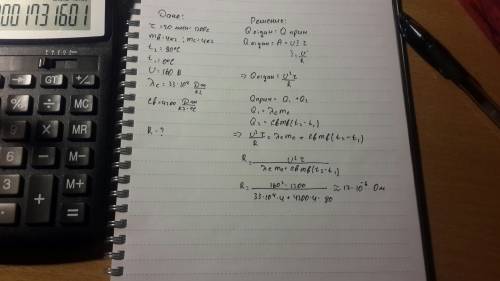 0001731601
Дано:
τ = 20 мин = 1200с
mв = 4кг; mс = 4кг
t₂ = 80°C
t₁ = 0°C
U = 160 В
λс = 33·10⁴ Дж/кг
Cв = 4200 Дж/кг·°C
R - ?
Решение:
Qотдан = Q прин
Qотдан = A = UIτ
I = U/R
⇒ Qотдан = U²τ/R
Qприн = Q₁ + Q₂
Q₁ = λс mс
Q₂ = Cв mв (t₂ - t₁)
⇒ U²τ/R = λс mс + Cв mв (t₂ - t₁)
R = U²τ/λс mс + Cв mв (t₂ - t₁)
R = 160²·1200/33·10⁴·4 + 4200·4·80 ≈ Ом
GT
MU
MR
M-
M+
%
7
8
9
4
5
6
+
=